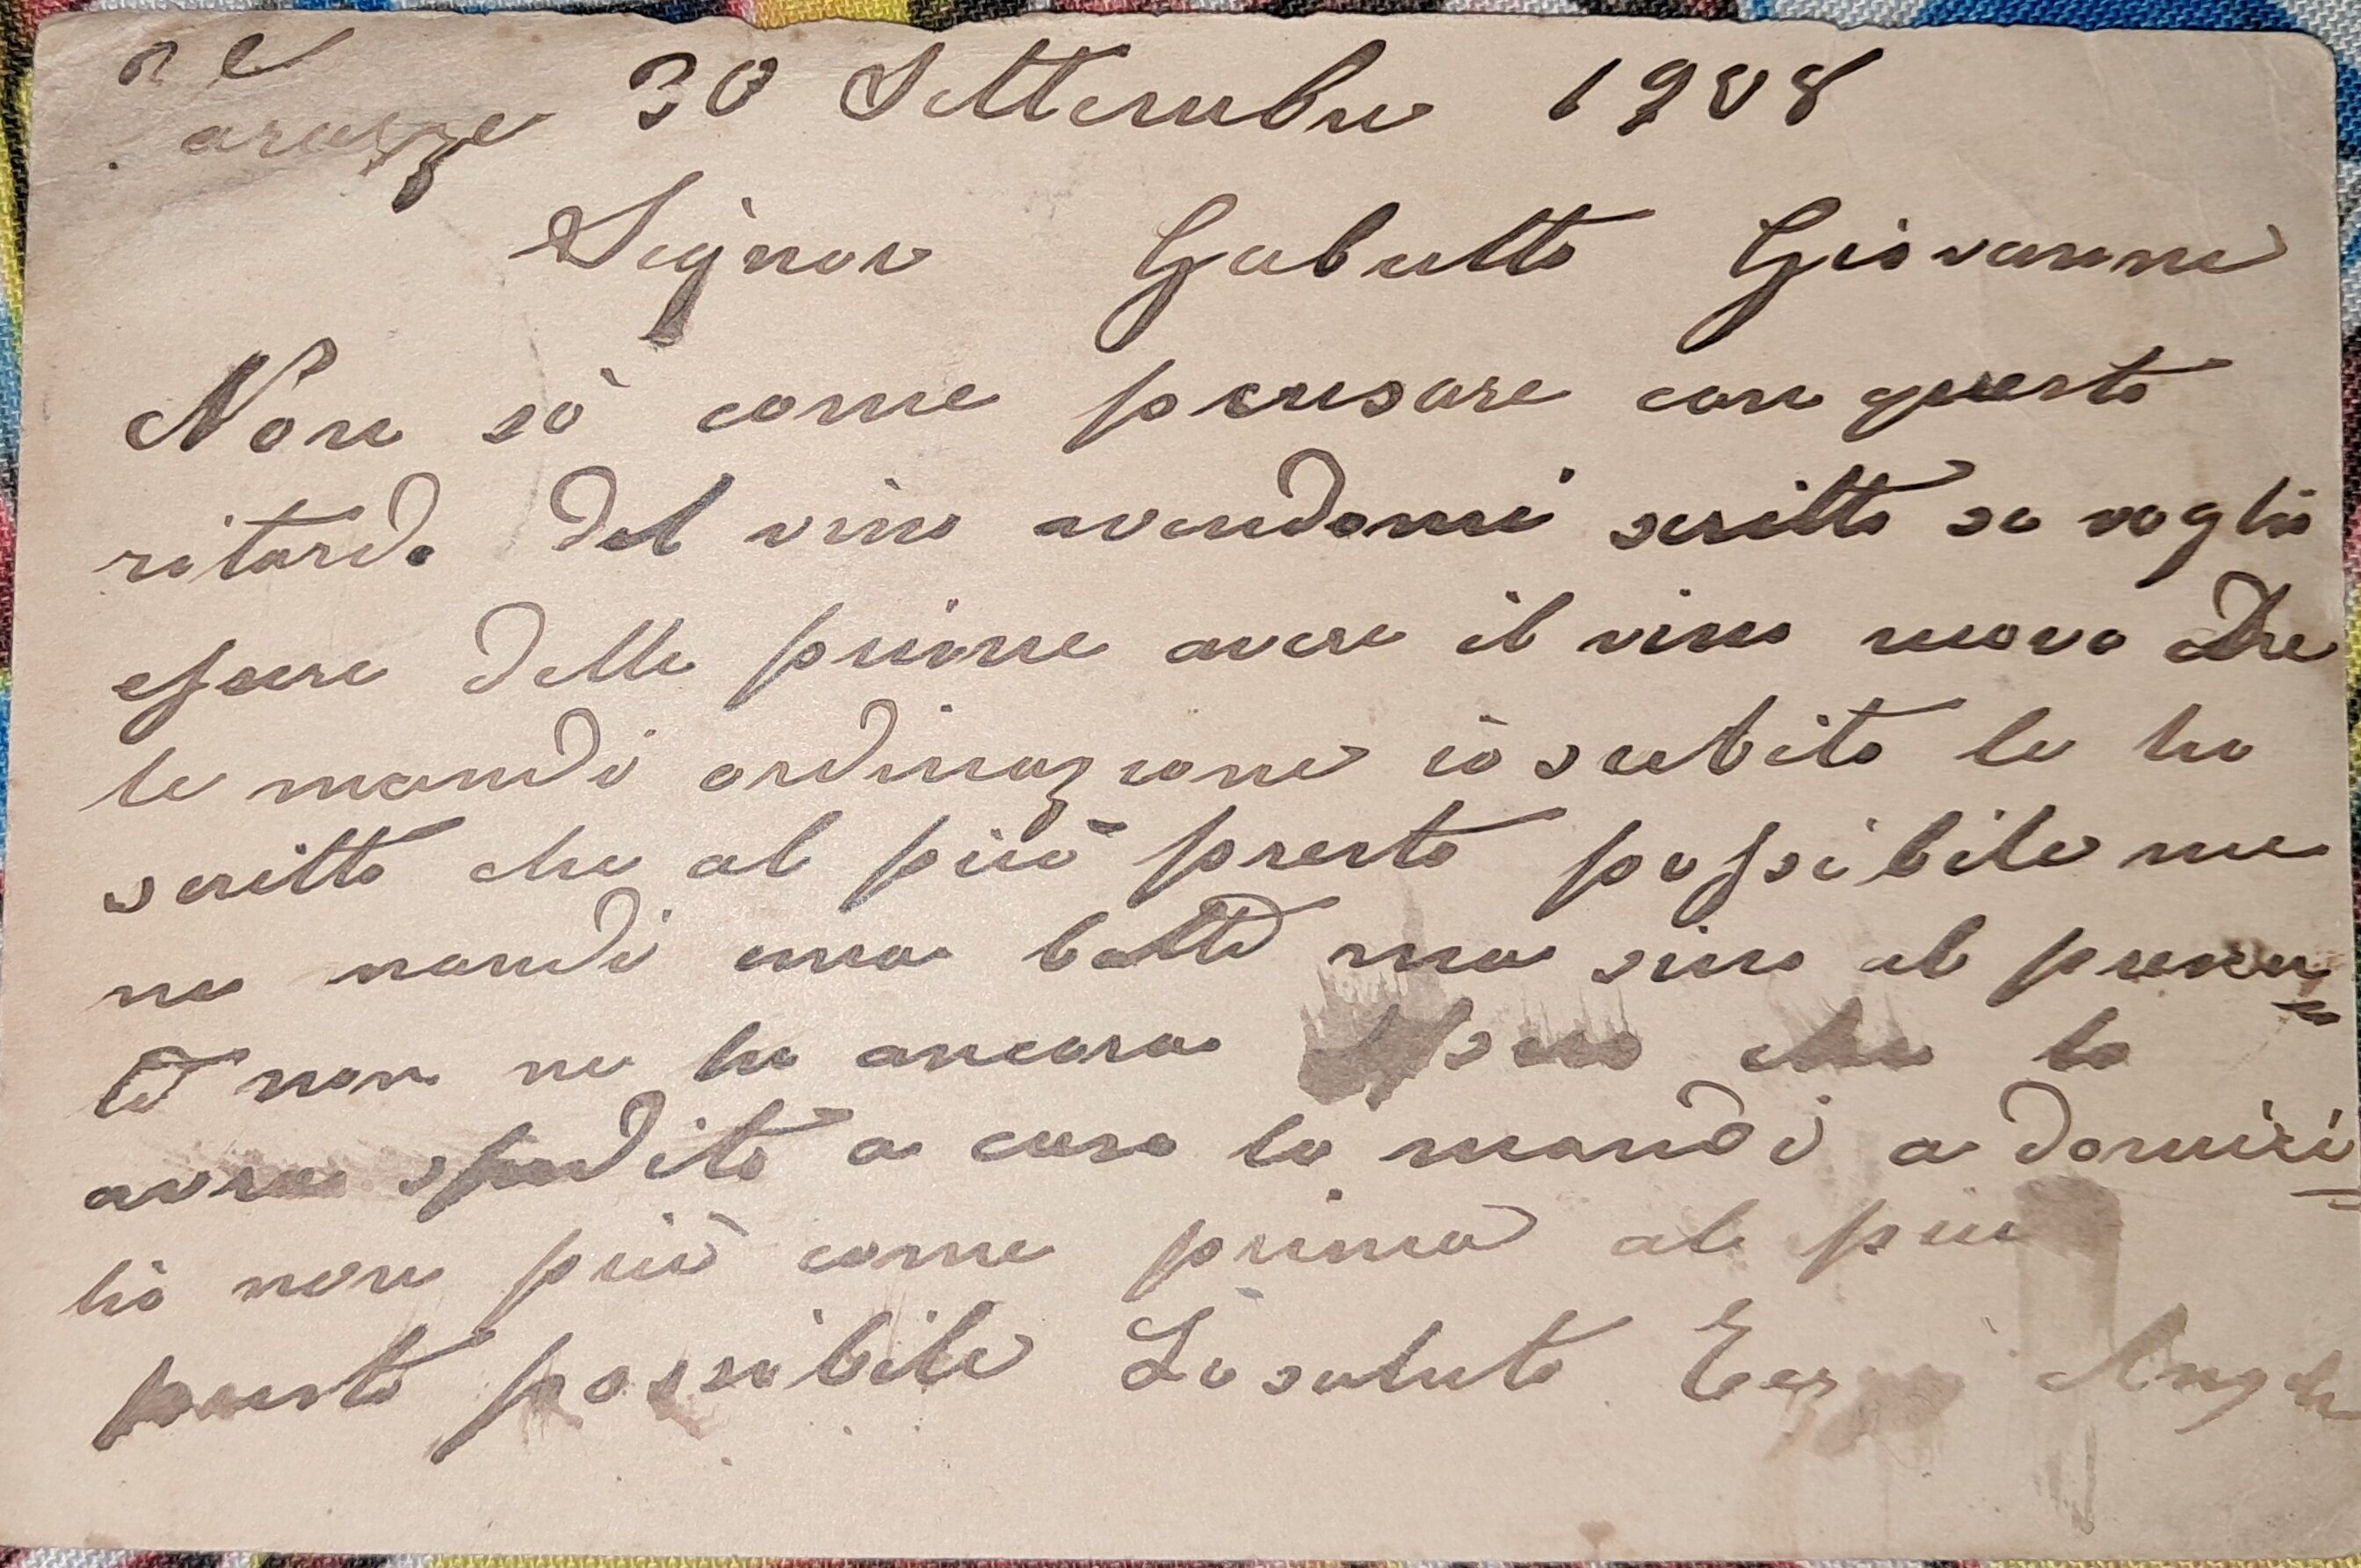 30 Settembre 1908
Signor Gabutto Giovanni
Non sò come pensare con questo
ritardo del vino avendomi scritto se voglio
essere delle prime avere il vino nuovo che
le mandi ordinazione io subito le ho
scritto che al più presto possibile me
ne mandi una botte ma sino al presen=
te non ne ho ancora spero che lo
avra spedito a caso lo mandi a domici=
lio non più come prima al piu
presto possibile La saluto Angelo